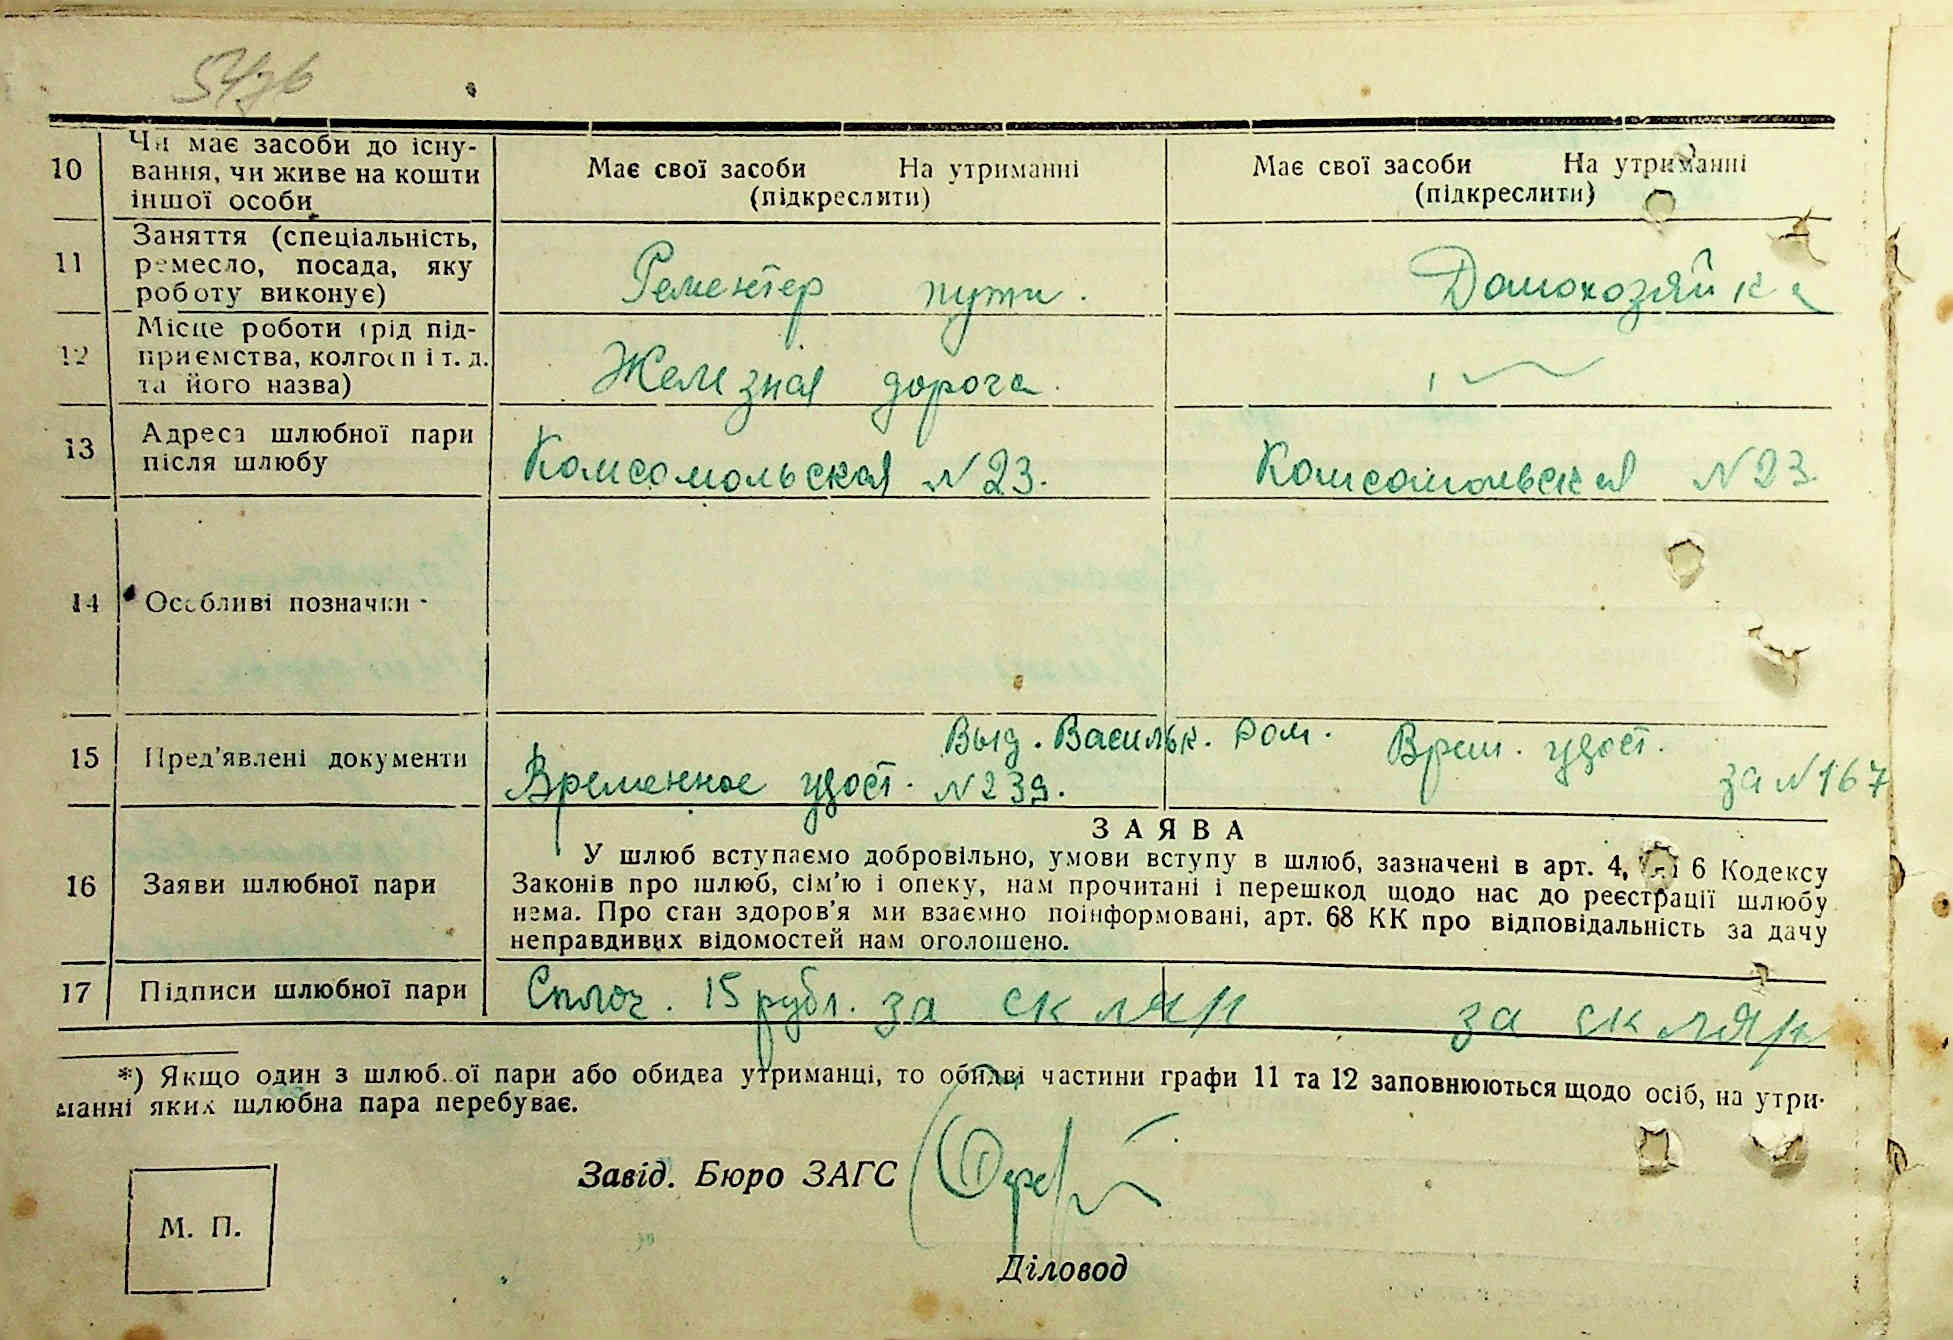 10 Чи має засоби до існу-
вання, чи живе на кошти
іншої особи
Має свої засоби На утриманні
(підкреслити)
Має свої засоби На утриманні
(підкреслити)
11 Заняття (спеціальність,
ремесло, посада, яку
роботу виконує)
Рементер пути.
Домохозяйка
12 Місце роботи (рід під-
приємства, колгосп і т. д.
та його назва)
Железная дорога.
13 Адреса шлюбної пари
після шлюбу
Комсомольская N 23.
Комсомольская N 23.
14 Особливі позначки
15 Пред'явлені документи
Выд. Васильк. ром.
Временное удост. N 239.
Врем. удост.
за N 167
16 Заяви шлюбної пари
ЗАЯВА
У шлюб вступаємо добровільно, умови вступу в шлюб, зазначені в арт. 4, 6 Кодексу
Законів про шлюб, сім'ю і опеку, нам прочитані і перешкод щодо нас до реєстрації шлюбу
нема. Про стан здоров'я ми взаємно поінформовані, арт. 68 КК про відповідальність за дачу
неправдивих відомостей нам оголошено.
17 Підписи шлюбної пари
Сплоч. 15 рубл. за скляр за скляр
*) Якщо один з шлюбної пари або обидва утриманці, то обидві частини графи 11 та 12 заповнюються щодо осіб, на утри-
манні яких шлюбна пара перебуває.
Завід. Бюро ЗАГС
М. П.
Діловод